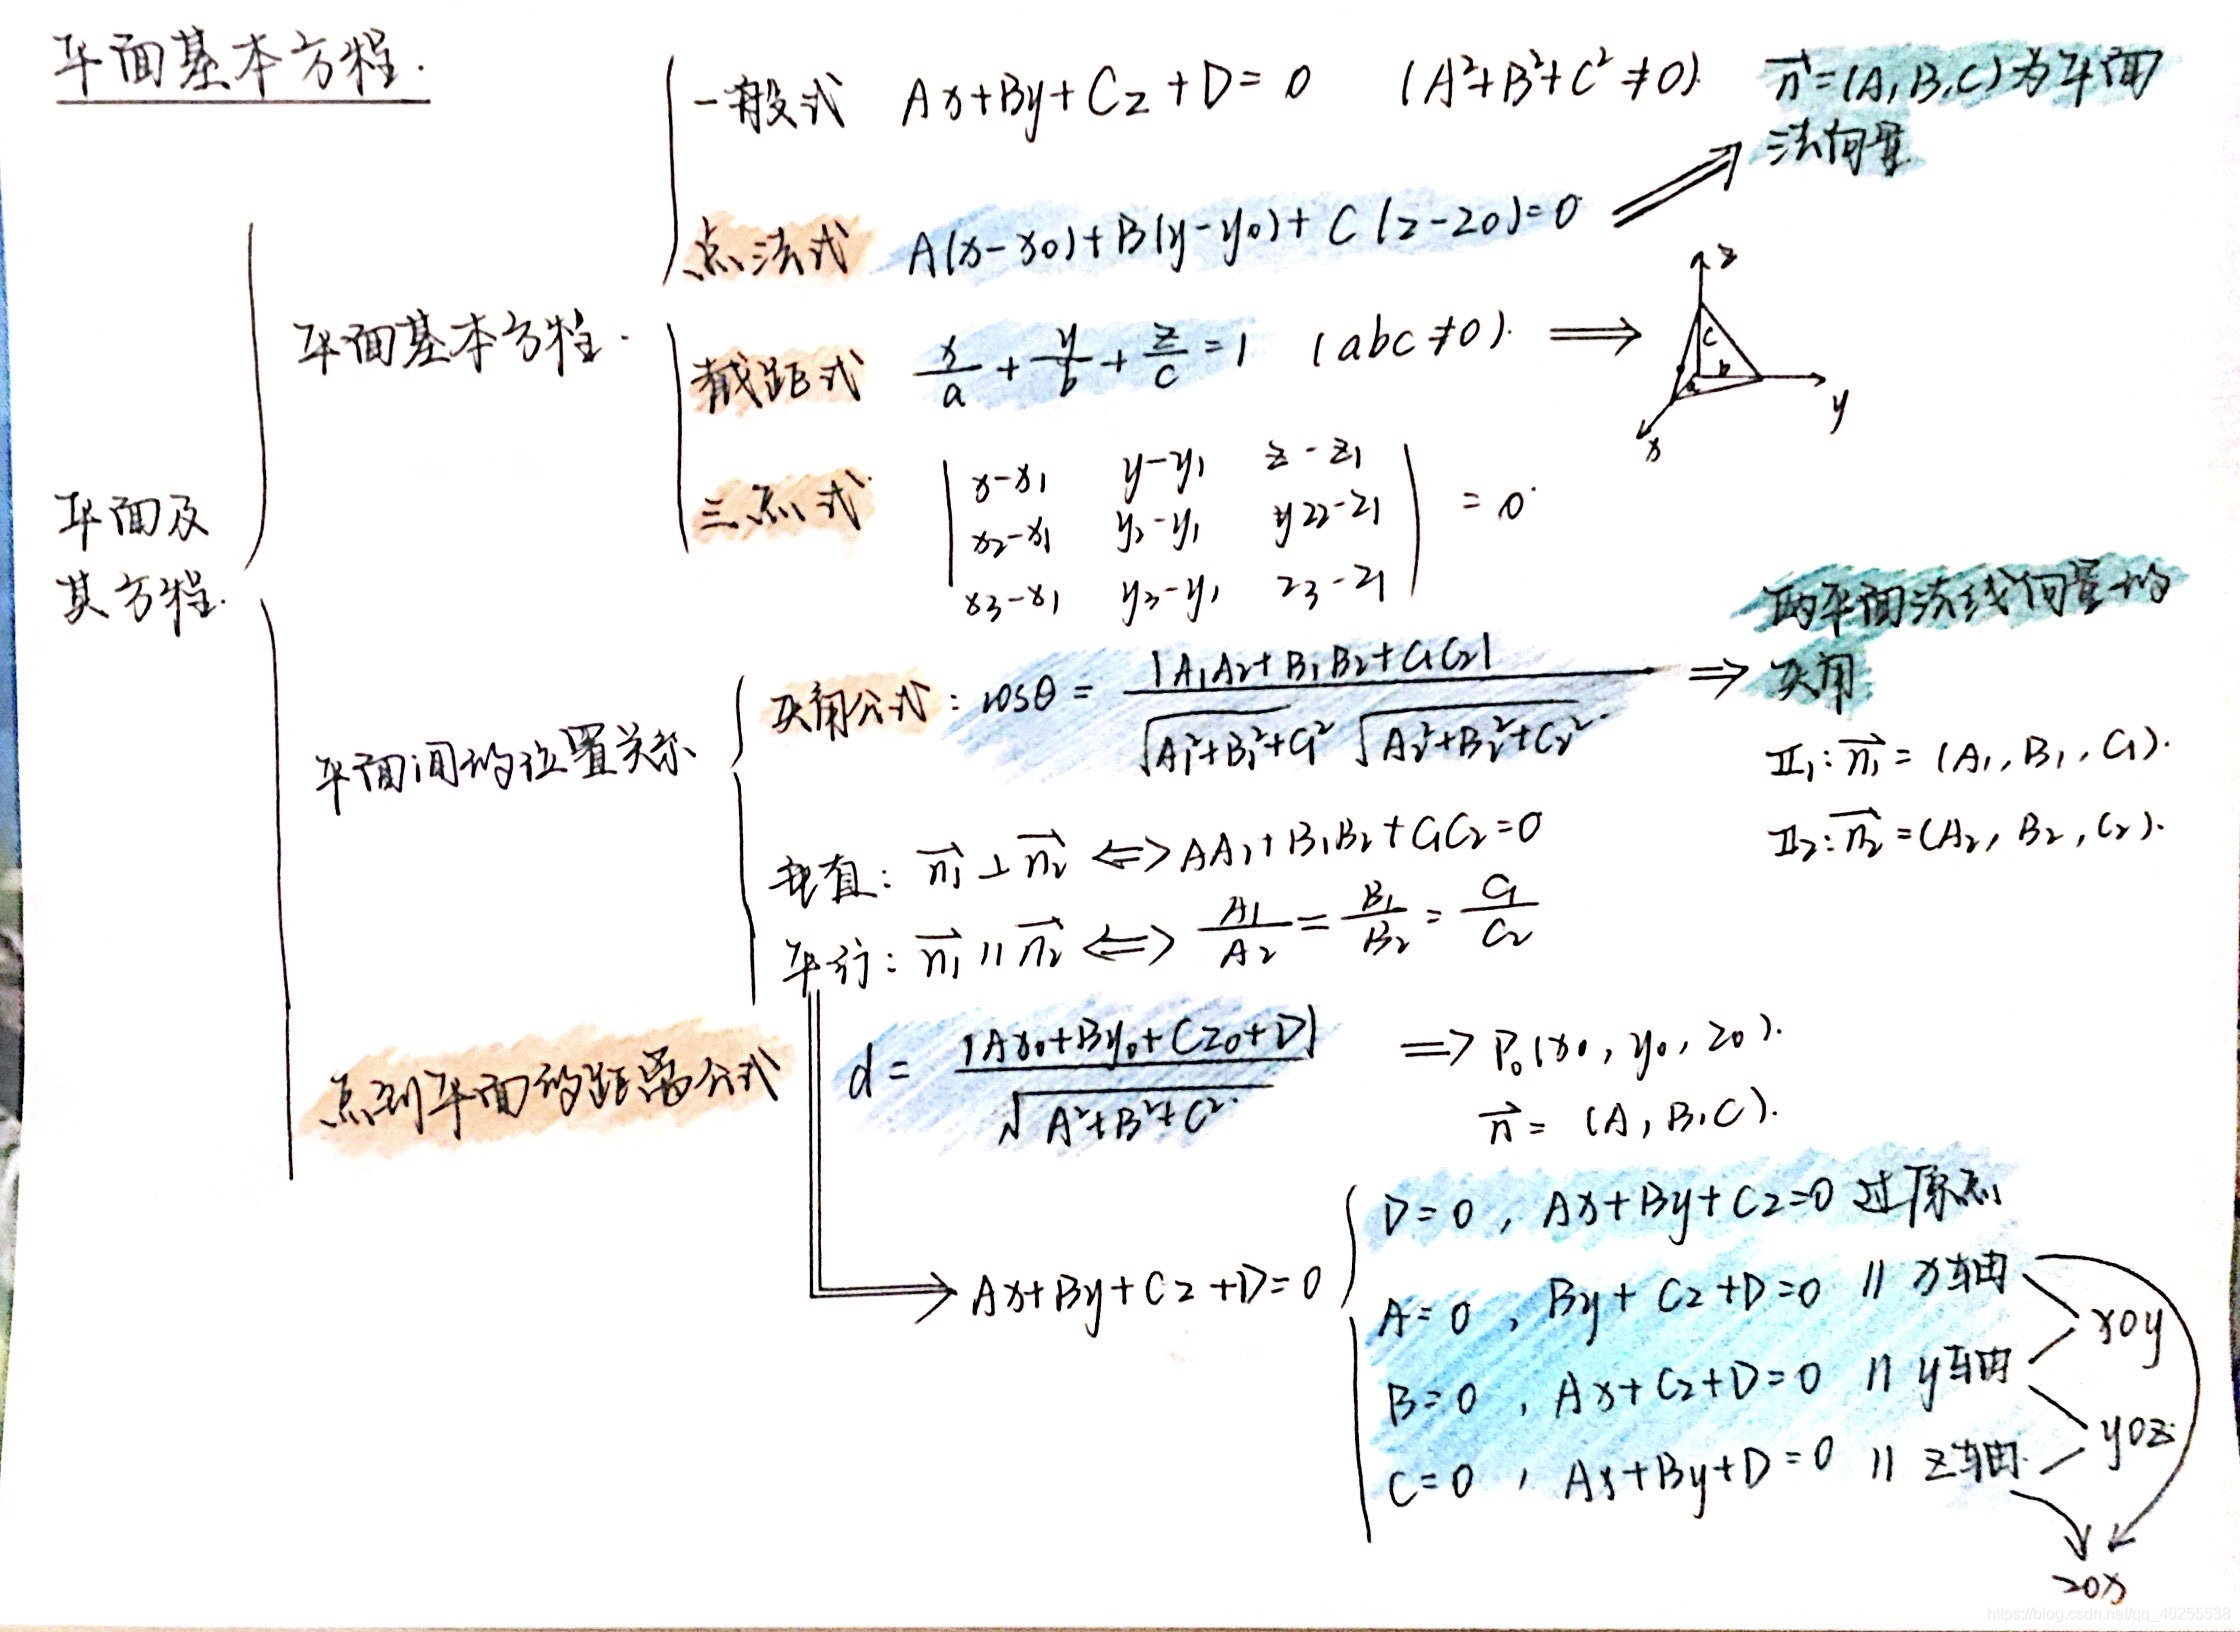 平面基本方程.
一般式 Ax+By+Cz+D=0 (A²+B²+C²≠0). n⃗=(A,B,C)为平面
法向量
点法式 A(x-x₀)+B(y-y₀)+C(z-z₀)=0 ⇒
平面基本方程.
截距式 x/a+y/b+z/c=1 (abc≠0). ⇒
z
c
b
a
y
x
三点式 | x-x₁ y-y₁ z-z₁ |
| x₂-x₁ y₂-y₁ yz₂-z₁ | =0
| x₃-x₁ y₃-y₁ z₃-z₁ |
平面及
其方程.
夹角公式: cosθ= |A₁A₂+B₁B₂+C₁C₂| / √A₁²+B₁²+C₁² √A₂²+B₂²+C₂² ⇒ 两平面法线向量的
夹角
Π₁: n₁⃗=(A₁,B₁,C₁).
Π₂: n₂⃗=(A₂,B₂,C₂).
平面间的位置关系
垂直: n₁⃗⊥n₂⃗ ⇔ AA₂+B₁B₂+C₁C₂=0
平行: n₁⃗∥n₂⃗ ⇔ A₁/A₂=B₁/B₂=C₁/C₂
点到平面的距离公式 d= |Ax₀+By₀+Cz₀+D| / √A²+B²+C² ⇒ P₀(x₀,y₀,z₀).
n⃗=(A,B,C).
Ax+By+Cz+D=0
D=0, Ax+By+Cz=0 过原点
A=0, By+Cz+D=0 ∥ x轴
B=0, Ax+Cz+D=0 ∥ y轴
C=0, Ax+By+D=0 ∥ z轴
xoy
yoz
zox
https://blog.csdn.net/qq_46255538